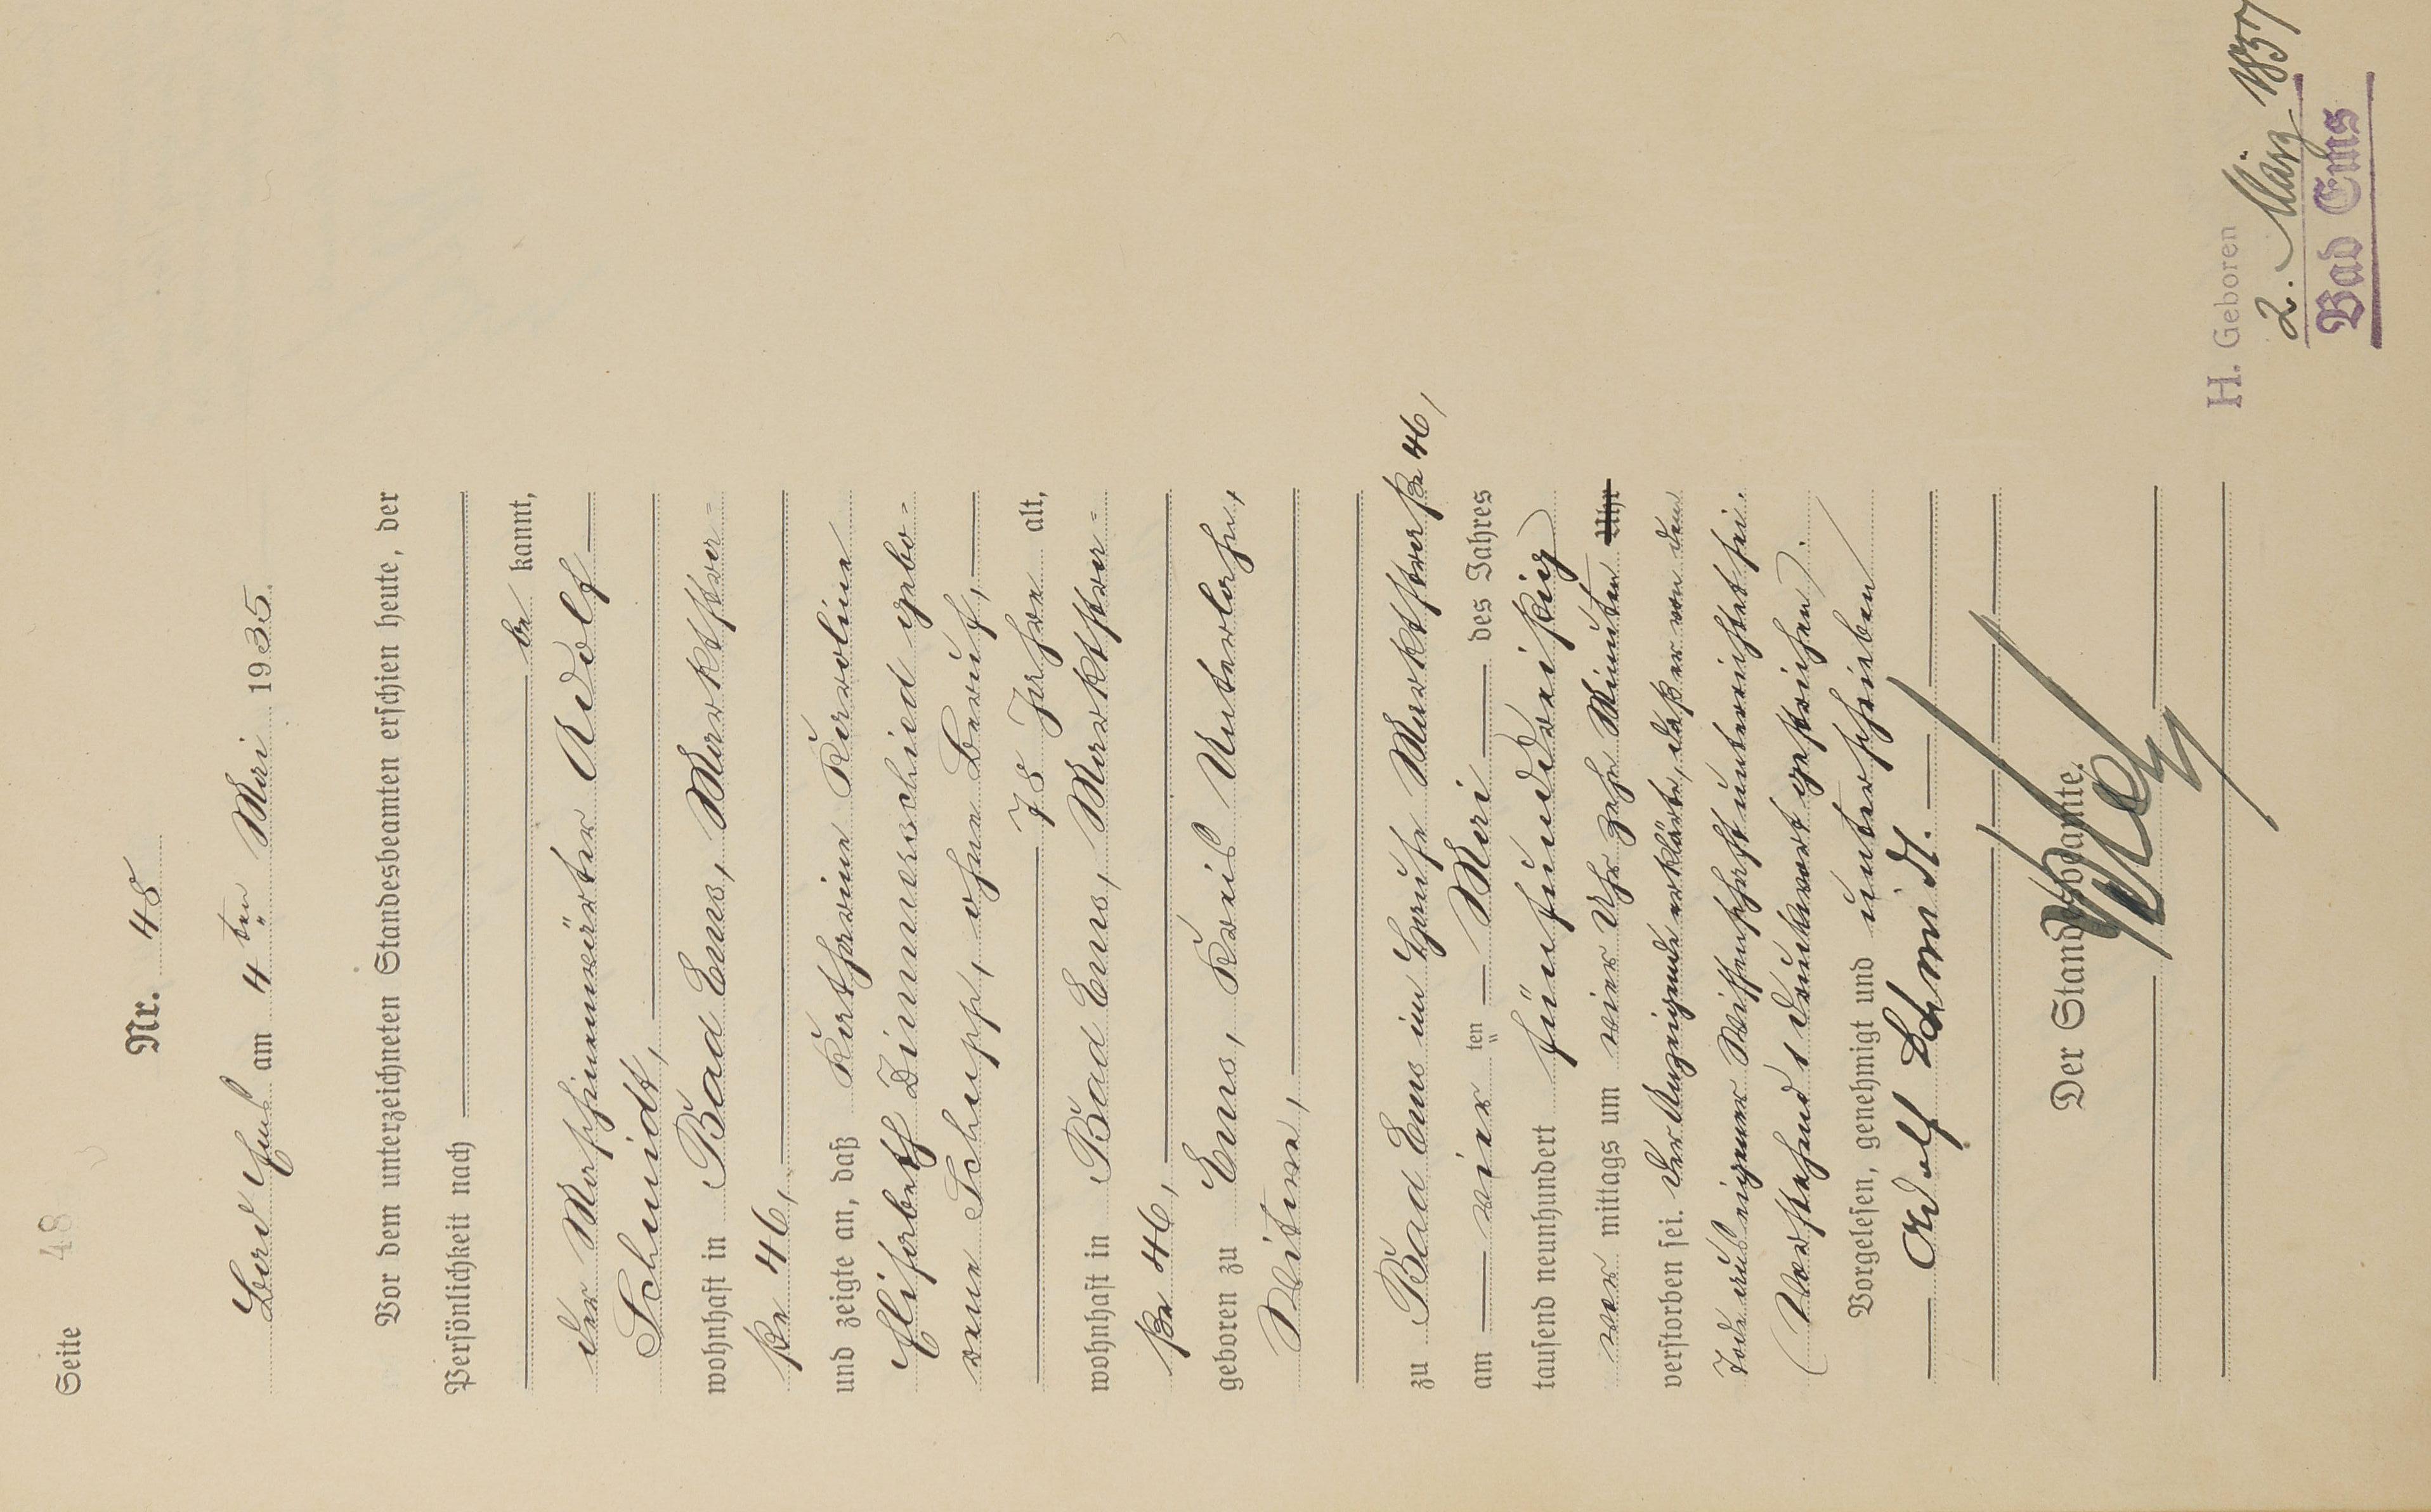 Seite 48
Nr. 48
Bad Ems am 4 ten Mai 1935.
Vor dem unterzeichneten Standesbeamten erschien heute, der
Persönlichkeit nach
be kannt,
der Maschinenwärter Adolf
Schmidt,
wohnhaft in Bad Ems, Marktstra=
ße 46,
und zeigte an, daß Katharine Karoline
Elisabeth Dimmerschied gebo=
rene Schupp, ohne Beruf,
78 Jahre alt,
wohnhaft in Bad Ems, Marktstra=
ße 46,
geboren zu Ems, Kreis Unterlahn,
Witwe,
zu Bad Ems im Hause Marktstraße 46,
am vier ten Mai des Jahres
tausend neunhundert fünfunddreißig
vor mittags um vier Uhr zehn Minuten Uhr
verstorben sei. Der Anzeigende erklärte, daß er von dem
Tode aus eigener Wissenschaft unterrichtet sei.
(Vorstehend 1 Druckwort gestrichen).
Vorgelesen, genehmigt und unterschrieben
Adolf Schmidt.
Der Standesbeamte.
H. Geboren
2. März 1857
Bad Ems